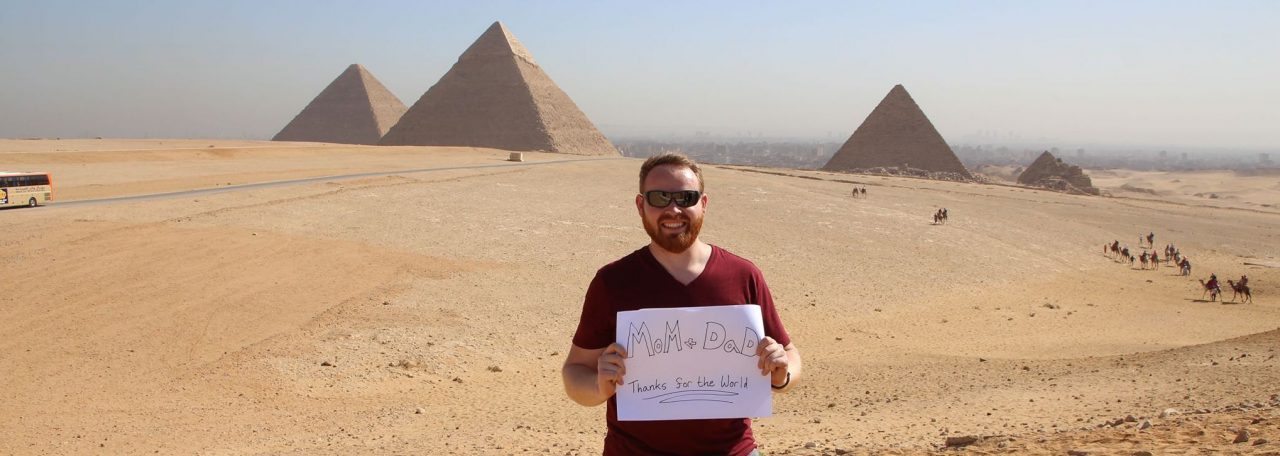 MoM + DaD
Thanks for the World